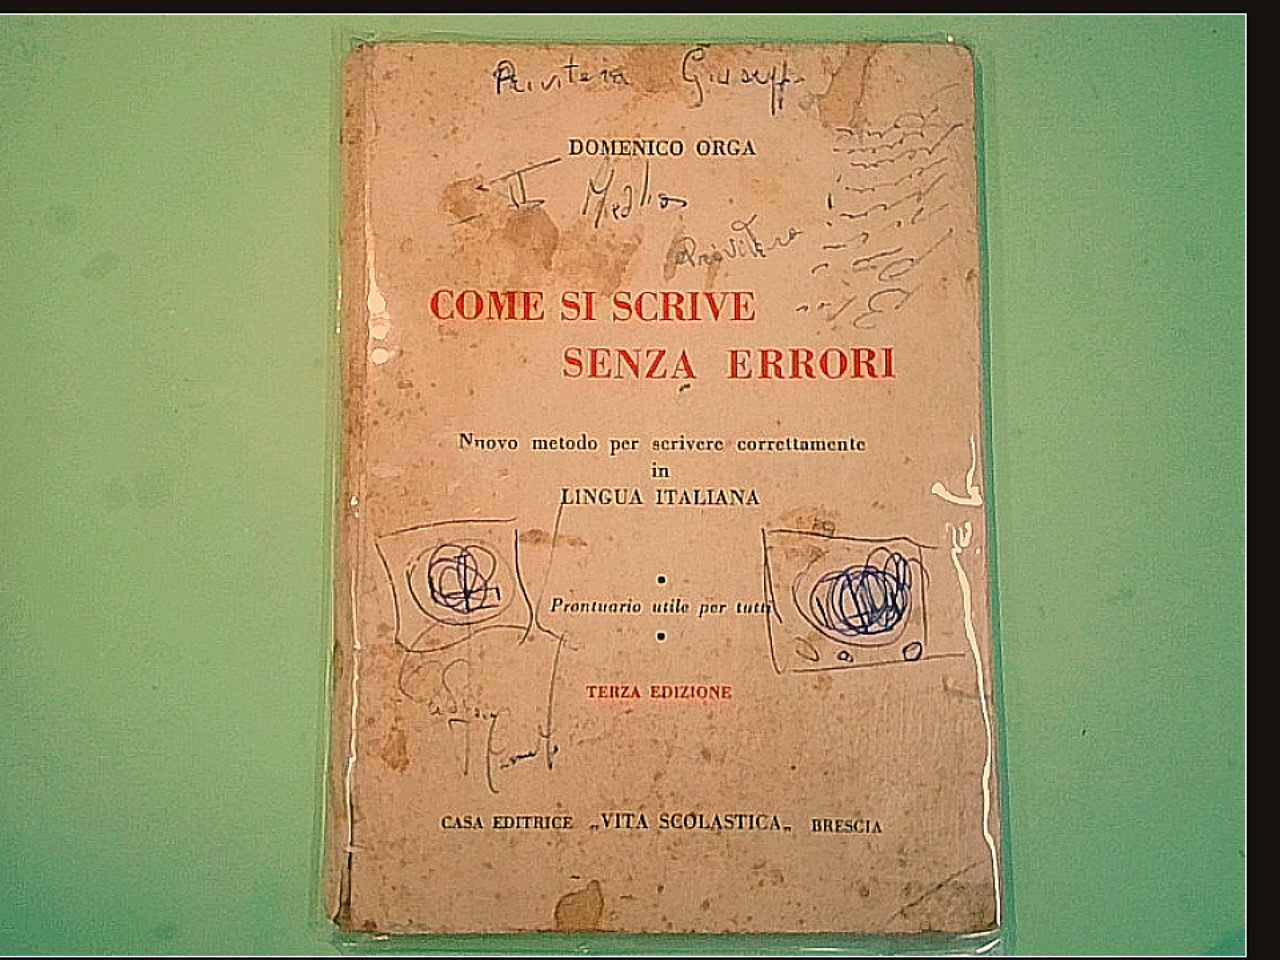 Privitera Giusepp
DOMENICO ORGA
II Media
Privitera
COME SI SCRIVE
SENZA ERRORI
Nuovo metodo per scrivere correttamente
in
LINGUA ITALIANA
Prontuario utile per tutti
TERZA EDIZIONE
CASA EDITRICE „VITA SCOLASTICA„ BRESCIA